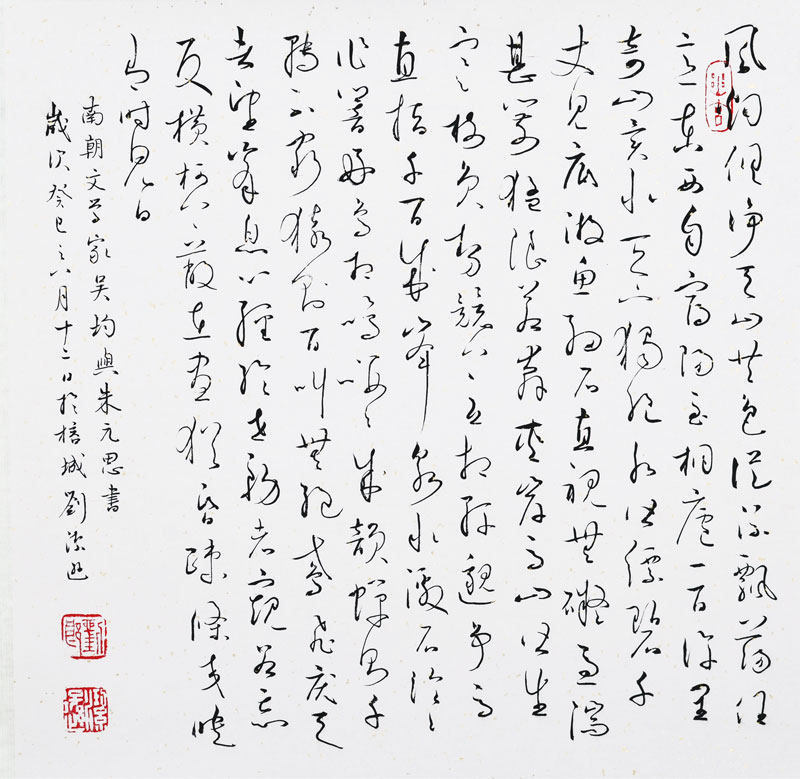 風烟俱净天山共色從流飄蕩任
意東西自富陽至桐廬一百許里
奇山異水天下獨絕水皆縹碧千
丈見底游魚細石直視無礙急湍
甚箭猛浪若奔夾岸高山皆生
寒樹負勢競上互相軒邈爭高
直指千百成峰泉水激石泠〻
作響好鳥相鳴嚶〻成韻蟬則千
轉不窮猿則百叫無絕鳶飛戾天
者望峰息心經綸世務者窺谷忘
反橫柯上蔽在晝猶昏疎條交映
有時見日
南朝文學家吳均與朱元思書
歲次癸巳之八月十二日於榕城劉